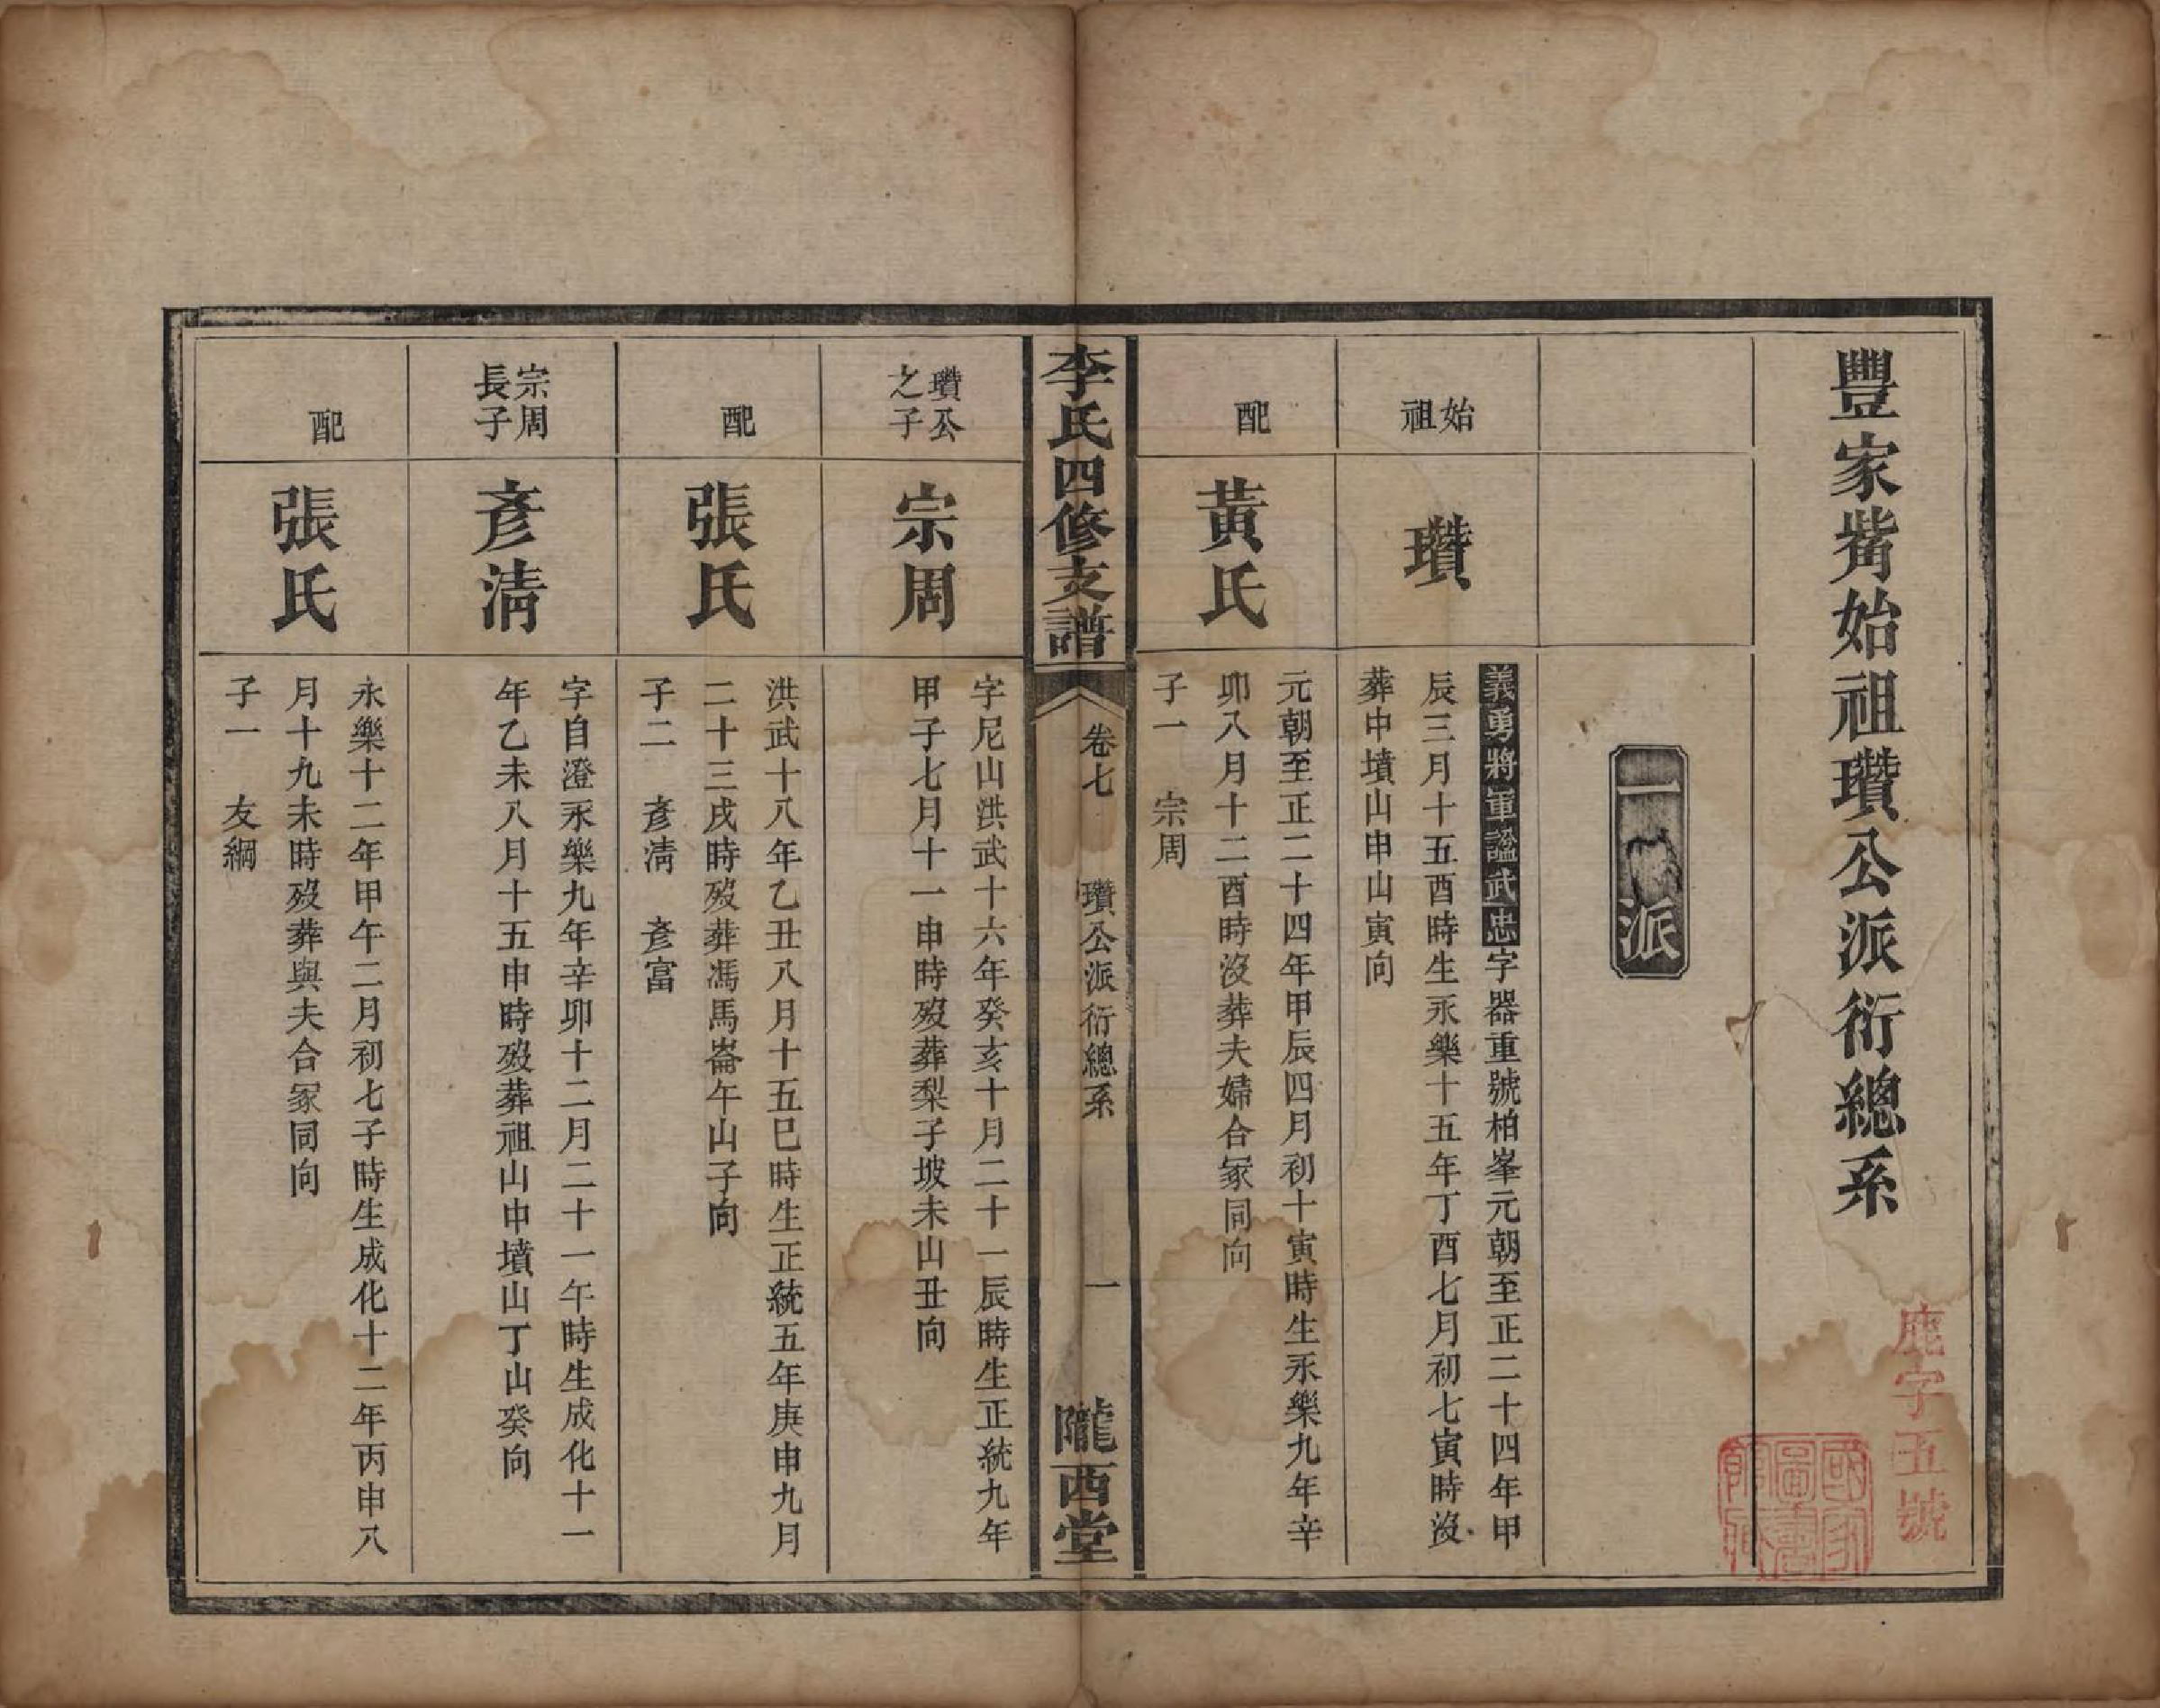 豐家觜始祖瓚公派衍總系
鹿字五號
國家圖書館藏
一派
始祖
瓚
義勇將軍諡武忠字器重號柏峯元朝至正二十四年甲
辰三月十五酉時生永樂十五年丁酉七月初七寅時沒
葬中墳山申山寅向
配
黃氏
元朝至正二十四年甲辰四月初十寅時生永樂九年辛
卯八月十二酉時沒葬夫婦合冢同向
子一 宗周
李氏四修支譜
卷七 瓚公派衍總系 一
隴西堂
瓚公之子
宗周
字尼山洪武十六年癸亥十月二十一辰時生正統九年
甲子七月十一申時歿葬梨子坡未山丑向
配
張氏
洪武十八年乙丑八月十五巳時生正統五年庚申九月
二十三戌時歿葬馮馬崙午山子向
子二 彥清 彥富
宗周長子
彥清
字自澄永樂九年辛卯十二月二十一午時生成化十一
年乙未八月十五申時歿葬祖山中墳山丁山癸向
配
張氏
永樂十二年甲午二月初七子時生成化十二年丙申八
月十九未時歿葬與夫合冢同向
子一 友綱